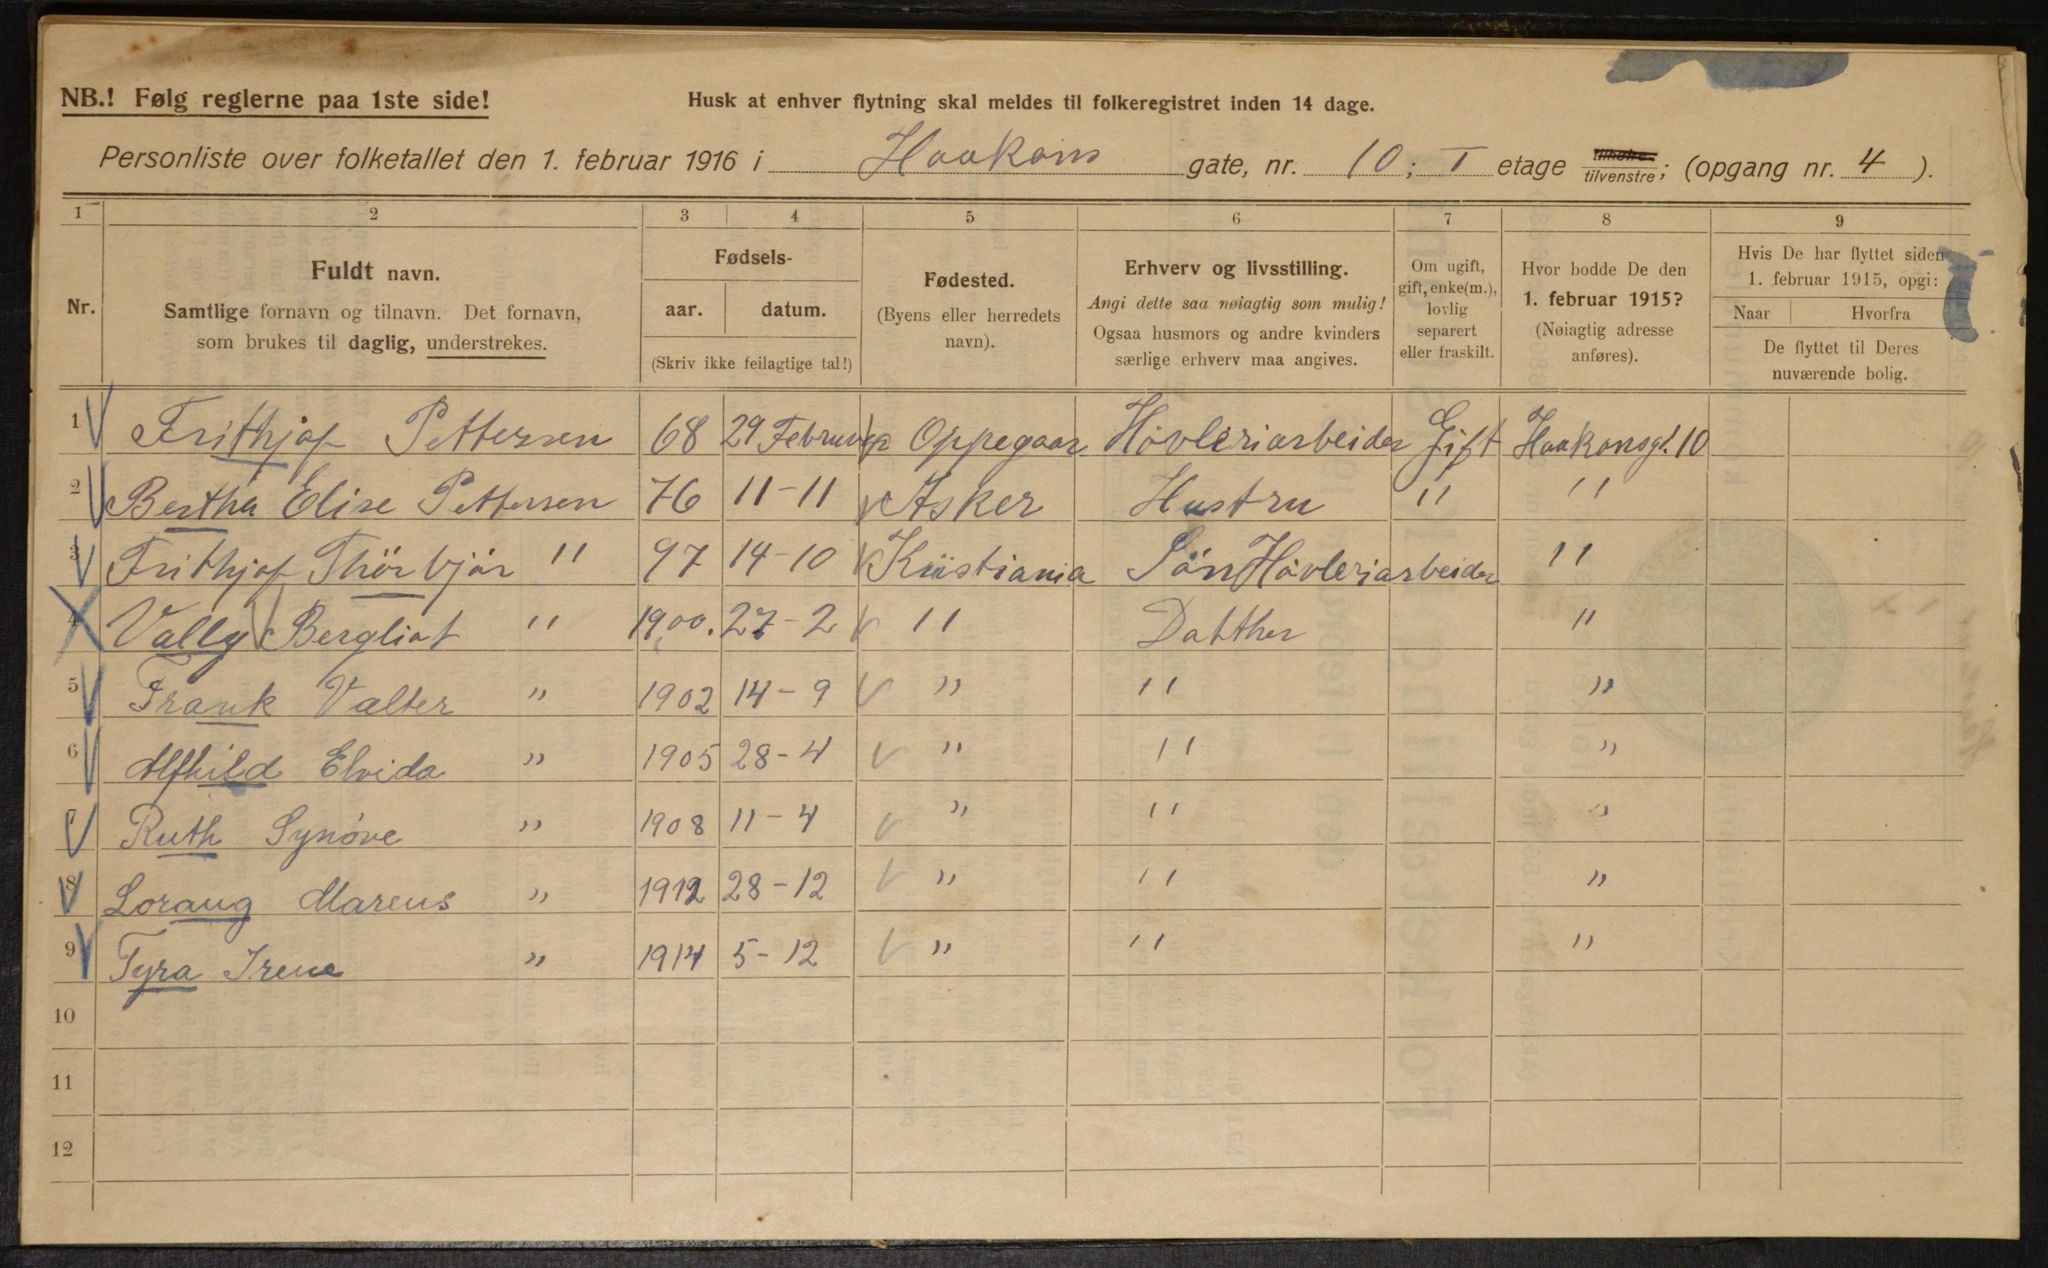 NB.! Følg reglerne paa 1ste side!
Husk at enhver flytning skal meldes til folkeregistret inden 14 dage.
Personliste over folketallet den 1. februar 1916 i Haakons gate, nr. 10; I etage tilhøire tilvenstre; (opgang nr. 4).
1 2 3 4 5 6 7 8 9
Nr.
Fuldt navn.
Samtlige fornavn og tilnavn. Det fornavn,
som brukes til daglig, understrekes.
Fødsels-
aar. datum.
(Skriv ikke feilagtige tal!)
Fødested.
(Byens eller herredets
navn).
Erhverv og livsstilling.
Angi dette saa nøiagtig som mulig!
Ogsaa husmors og andre kvinders
særlige erhverv maa angives.
Om ugift,
gift, enke(m.),
lovlig
separert
eller fraskilt.
Hvor bodde De den
1. februar 1915?
(Nøiagtig adresse
anføres).
Hvis De har flyttet siden
1. februar 1915, opgi:
Naar Hvorfra
De flyttet til Deres
nuværende bolig.
1 Frithjof Pettersen 68 29 Februar Oppegaar Høvleriarbeider Gift Haakonsgt. 10
2 Bertha Elise Pettersen 76 11-11 Asker Hustru " "
3 Frithjof Thörbjör " 97 14-10 Kristiania Sön Høvleriarbeider "
4 Vally Bergliot " 1900. 27-2 " Datther "
5 Frank Valter " 1902 14-9 " " "
6 Alfhild Elvida " 1905 28-4 " " "
7 Ruth Synøve " 1908 11-4 " " "
8 Loraug Marens " 1912 28-12 " " "
9 Tyra Irene " 1914 5-12 " " "
10
11
12